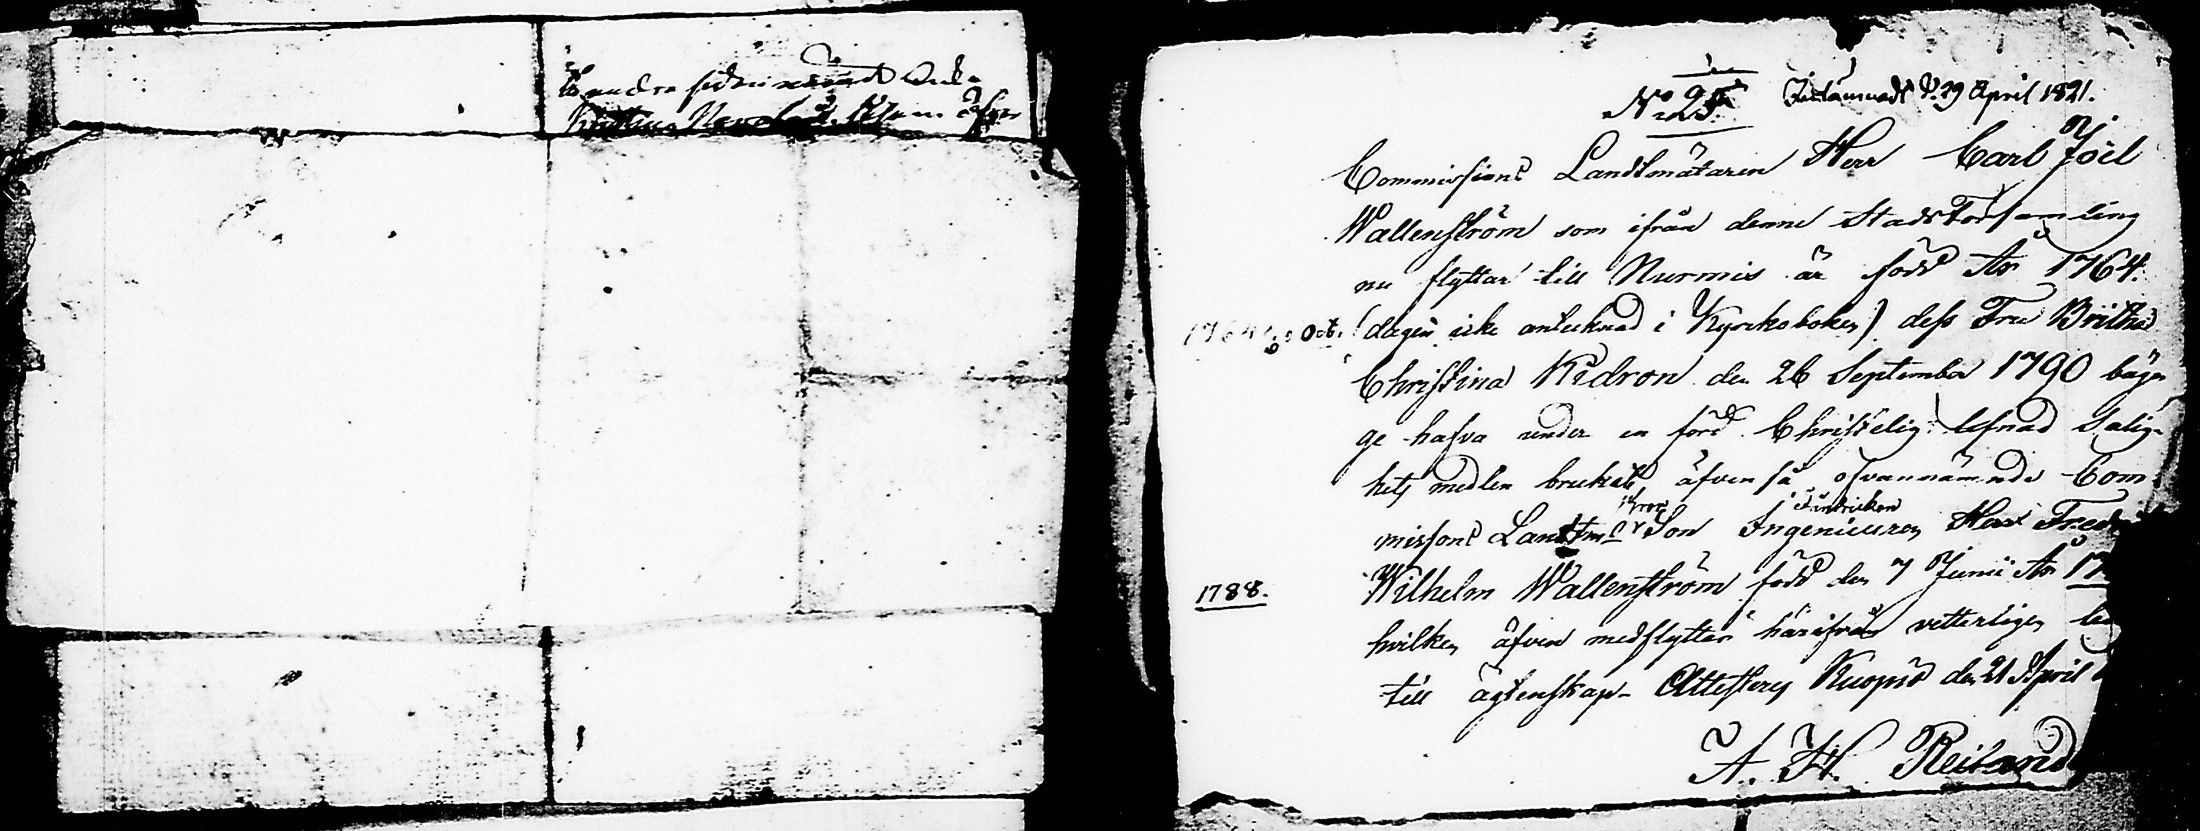 å andra sidan
No 25. Inlämnadt d. 29 April 1821.
Commissions Landtmätaren Herr Carl Joel
Wallenström som ifrån denne Stads Församling
nu flyttar till Nurmis är född År 1764.
1764 6 Oct. (dagen icke antecknad i Kyrkoboken) dess Fru Britha
Christina Kidron den 26 September 1790 bäg
ge hafva under en förd Christelig lefnad Salig-
hets medlen brukat, äfven så ofvannämnde Com-
missions Landtm: Son Ingenieuren Herr Fredr
Fendricken
1788. Wilhelm Wallenström född den 7 Junii År 17
hvilken äfven medflyttar härifrån vetterligen le
till ägtenskap. Attesterar Kuopio den 21 April
A. H. Reiland